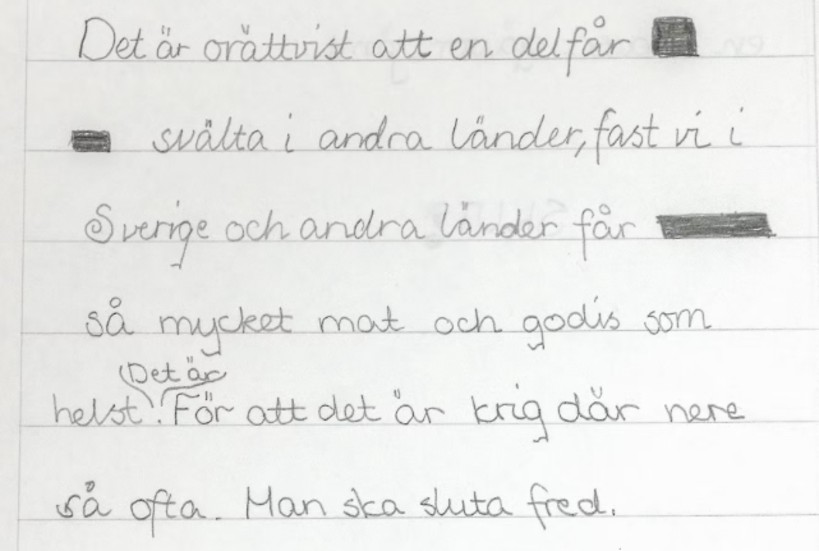 Det är orättvist att en del får
svälta i andra länder, fast vi i
Sverige och andra länder får
så mycket mat och godis som
(Det är)
helst. För att det är krig där nere
så ofta. Man ska sluta fred.